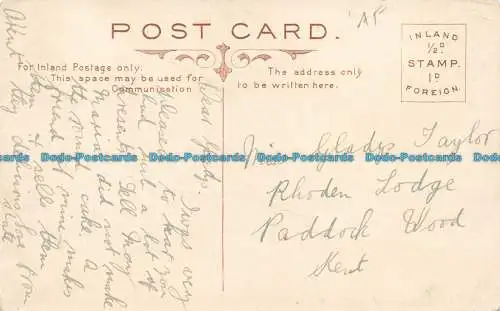 POST CARD.
'AF
For Inland Postage only.
This space may be used for
Communication
The address only
to be written here.
INLAND
½D
STAMP.
1D
FOREIGN.
Dodo-Postcards Dodo-Postcards Dodo-Postcards Dodo-Postcards
Dodo-Postcards Dodo-Postcards Dodo-Postcards Dodo-Postcards
Miss Gladys Taylor
Rhoden Lodge
Paddock Wood
Kent
I was very
pleased to hear you
had such a lot of
presents. Tell Mary
Maria did not make
the cake. A
friend of mine makes
them & sell them
they